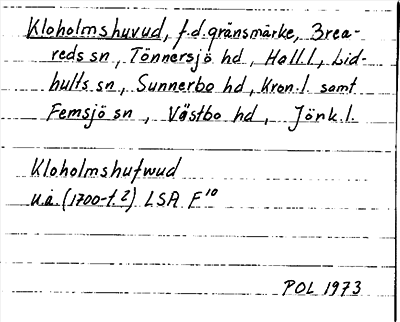 Kloholmshuvud, f.d. gränsmärke, Brea-
reds sn, Tönnersjö hd, Hall.l, Lid-
hults sn, Sunnerbo hd, Kron.l. samt
Femsjö sn, Västbo hd, Jönk.l.
Kloholmshufwud
u.å. (1700-t.?) LSA F¹⁰
POL 1973